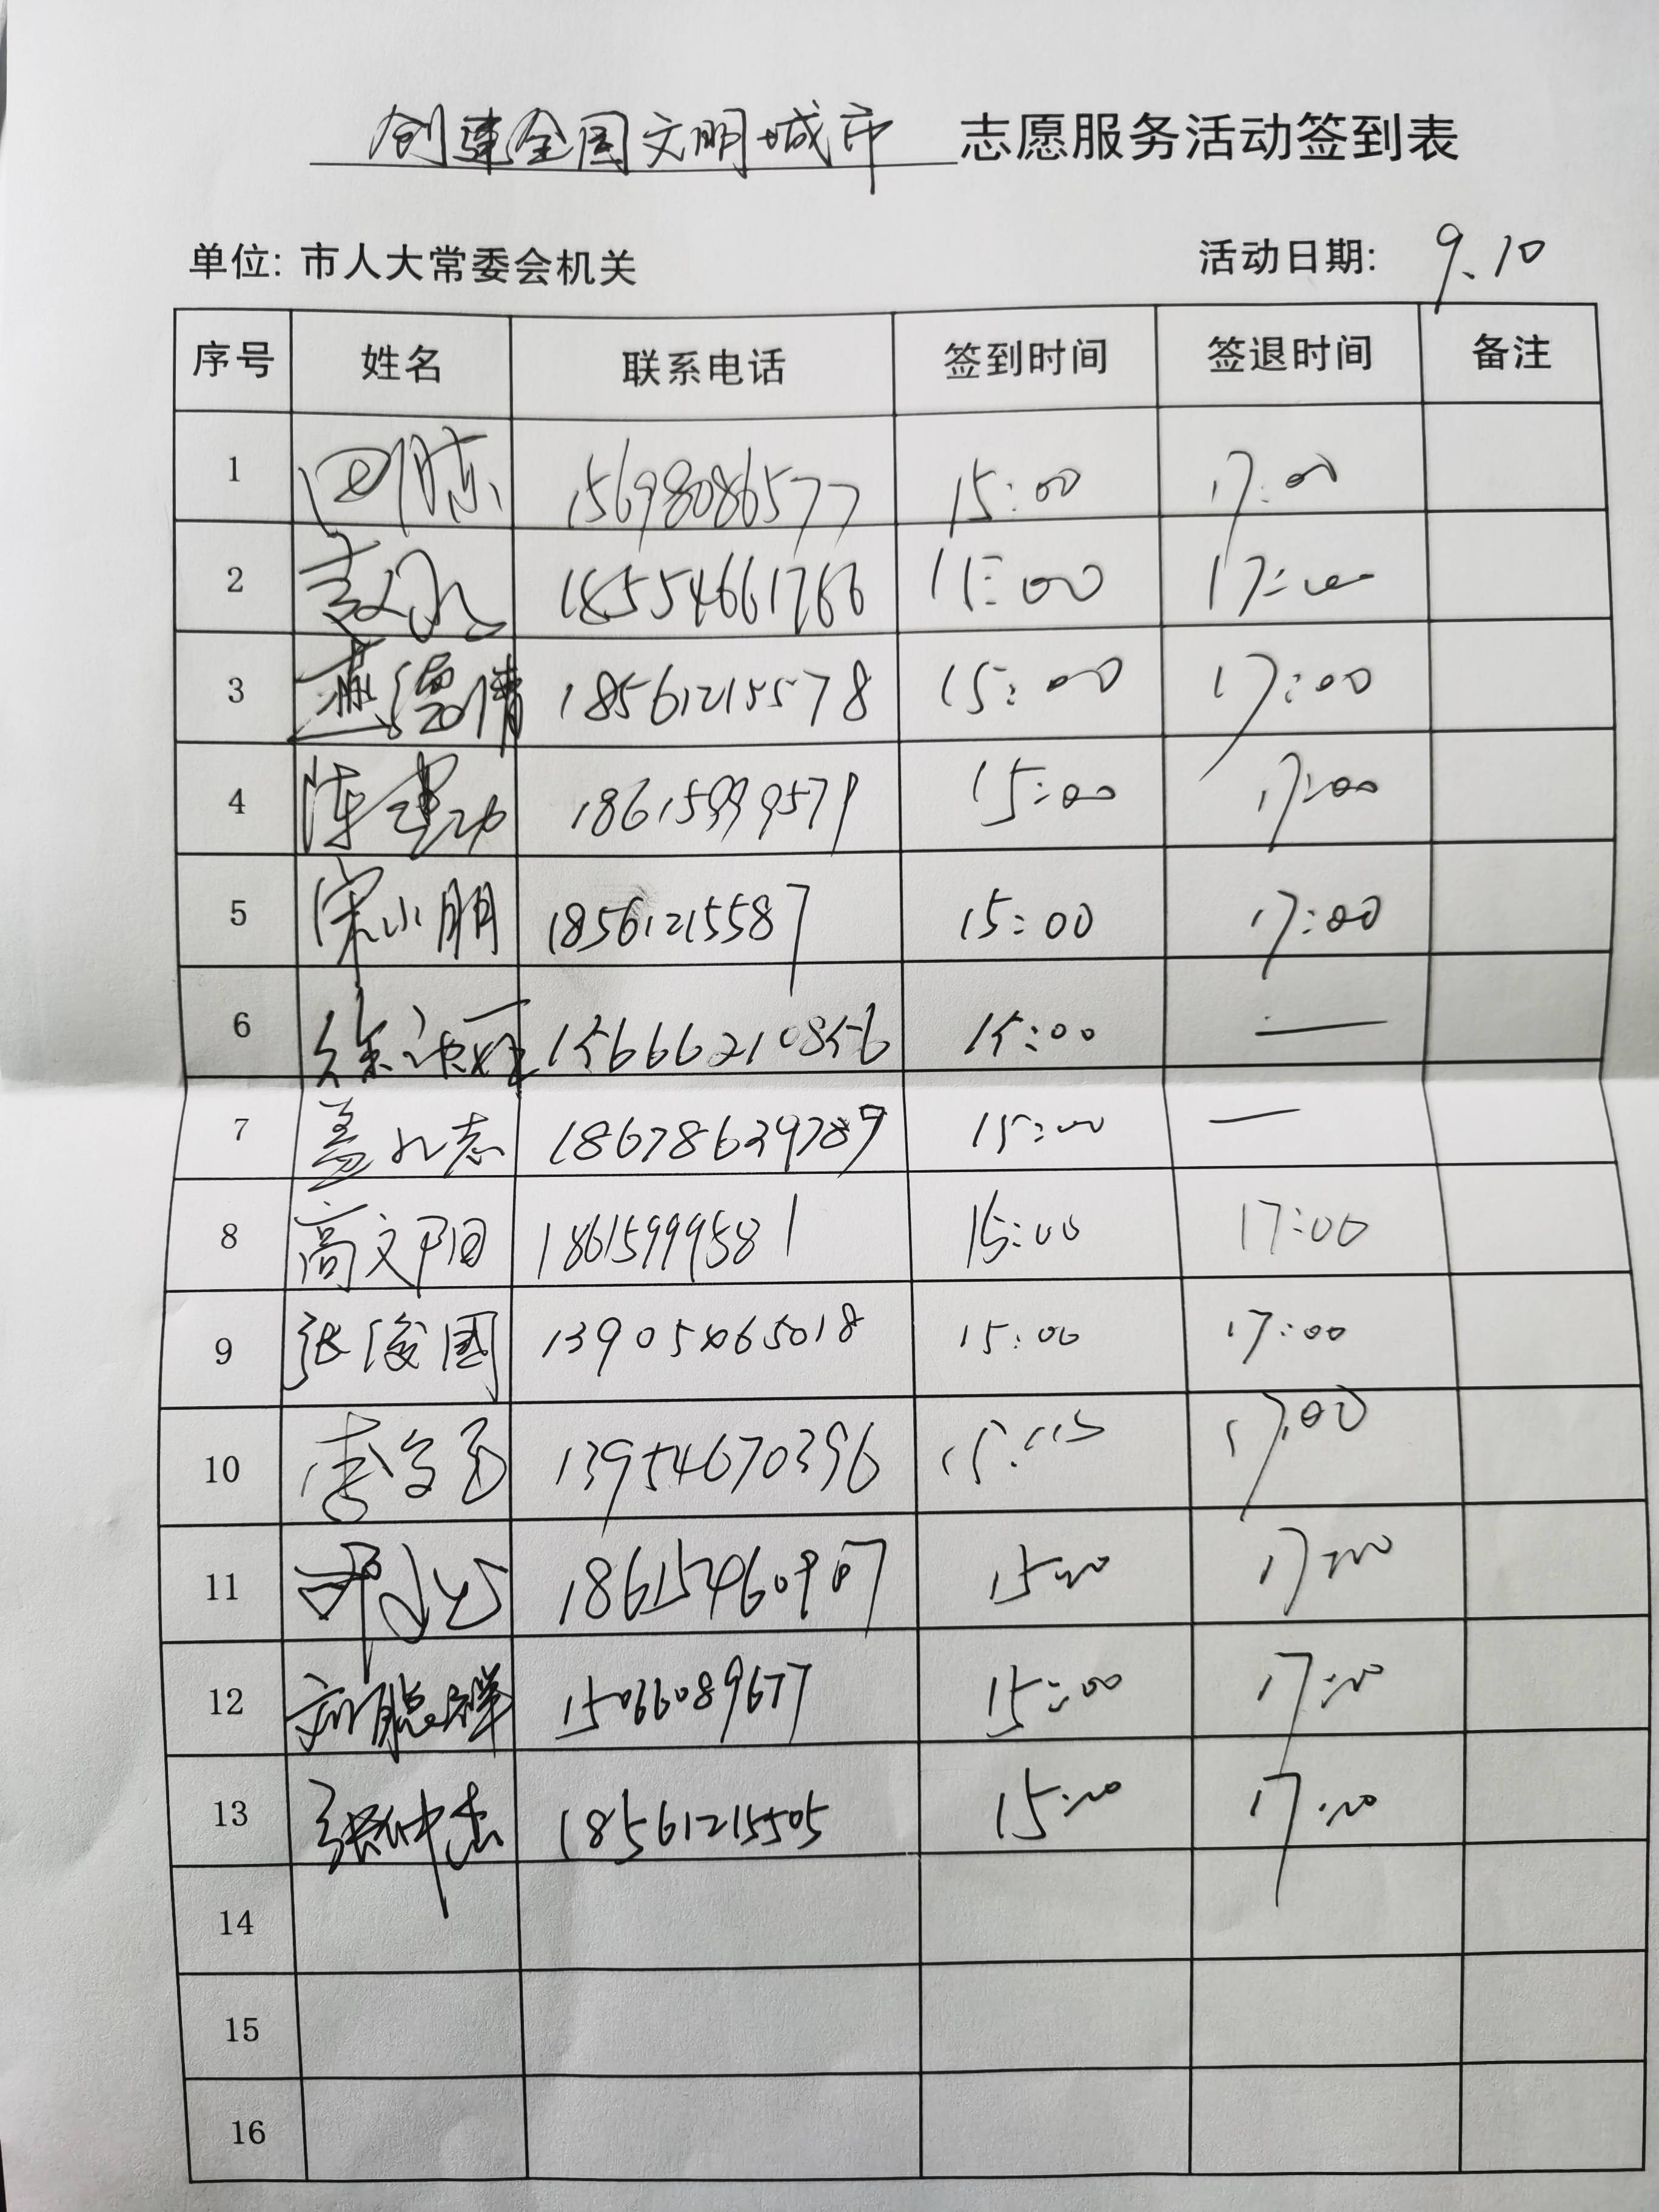 创建全国文明城市 志愿服务活动签到表
单位: 市人大常委会机关 活动日期: 9.10
序号 姓名 联系电话 签到时间 签退时间 备注
1 15698086577 15:00 17:00
2 18554661766 15:00 17:00
3 燕德倩 18561215578 15:00 17:00
4 陈建功 18615999579 15:00 17:00
5 宋小朋 18561215587 15:00 17:00
6 15666210856 15:00 —
7 志 18678639789 15:00 —
8 高文阳 18615999581 15:00 17:00
9 张俊国 13905465018 15:00 17:00
10 李 13954670396 15: 17:00
11 18615460907 15:00 17:00
12 刘聪祥 15066089677 15:00 17:00
13 张仲杰 18561215505 15:00 17:00
14
15
16